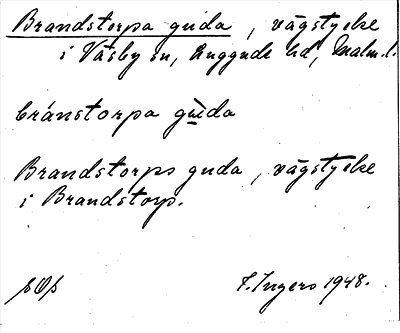 Brandstorpa guda, vägstycke
i Väsby sn, Luggude hd, Malm. l.
bránstorpa gùda
Brandstorps guda, vägstycke
i Brandstorp.
F. Ingers 1948.